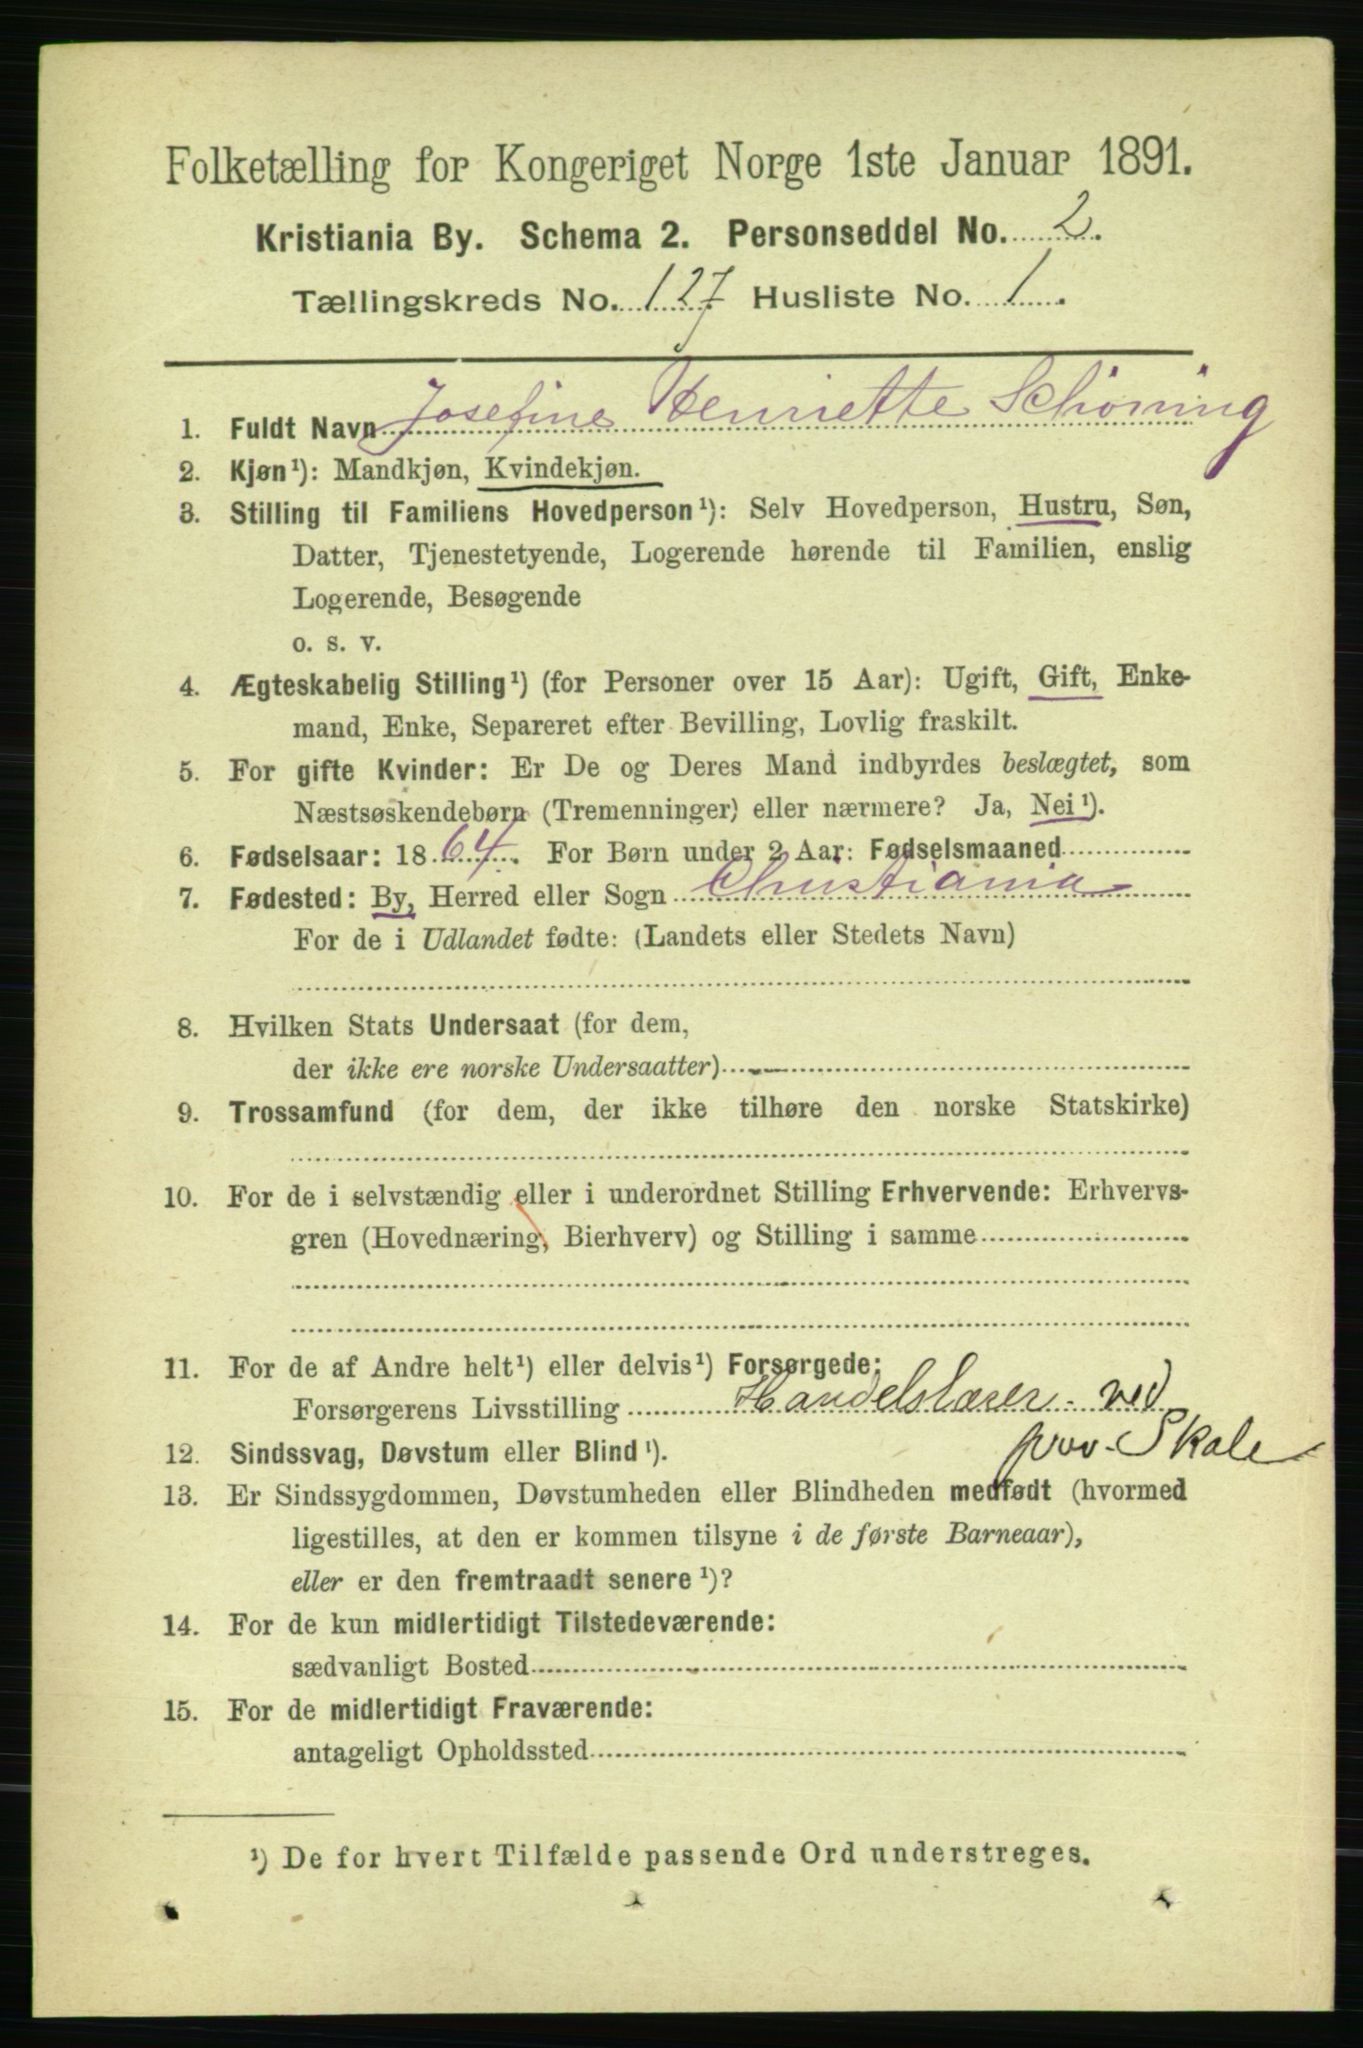 Folketælling for Kongeriget Norge 1ste Januar 1891.
Kristiania By. Schema 2. Personseddel No. 2.
Tællingskreds No. 127 Husliste No. 1.
1. Fuldt Navn Josefine Henriette Schöning
2. Kjøn¹): Mandkjøn, Kvindekjøn.
3. Stilling til Familiens Hovedperson¹): Selv Hovedperson, Hustru, Søn,
Datter, Tjenestetyende, Logerende hørende til Familien, enslig
Logerende, Besøgende
o. s. v.
4. Ægteskabelig Stilling¹) (for Personer over 15 Aar): Ugift, Gift, Enke-
mand, Enke, Separeret efter Bevilling, Lovlig fraskilt.
5. For gifte Kvinder: Er De og Deres Mand indbyrdes beslægtet, som
Næstsøskendebørn (Tremenninger) eller nærmere? Ja, Nei¹).
6. Fødselsaar: 1864. For Børn under 2 Aar: Fødselsmaaned
7. Fødested: By, Herred eller Sogn Christiania
For de i Udlandet fødte: (Landets eller Stedets Navn)
8. Hvilken Stats Undersaat (for dem,
der ikke ere norske Undersaatter)
9. Trossamfund (for dem, der ikke tilhøre den norske Statskirke)
10. For de i selvstændig eller i underordnet Stilling Erhvervende: Erhvervs-
gren (Hovednæring, Bierhverv) og Stilling i samme
11. For de af Andre helt¹) eller delvis¹) Forsørgede:
Forsørgerens Livsstilling Handelslærer ved
priv. Skole
12. Sindssvag, Døvstum eller Blind¹).
13. Er Sindssygdommen, Døvstumheden eller Blindheden medfødt (hvormed
ligestilles, at den er kommen tilsyne i de første Barneaar),
eller er den fremtraadt senere¹)?
14. For de kun midlertidigt Tilstedeværende:
sædvanligt Bosted
15. For de midlertidigt Fraværende:
antageligt Opholdssted
¹) De for hvert Tilfælde passende Ord understreges.